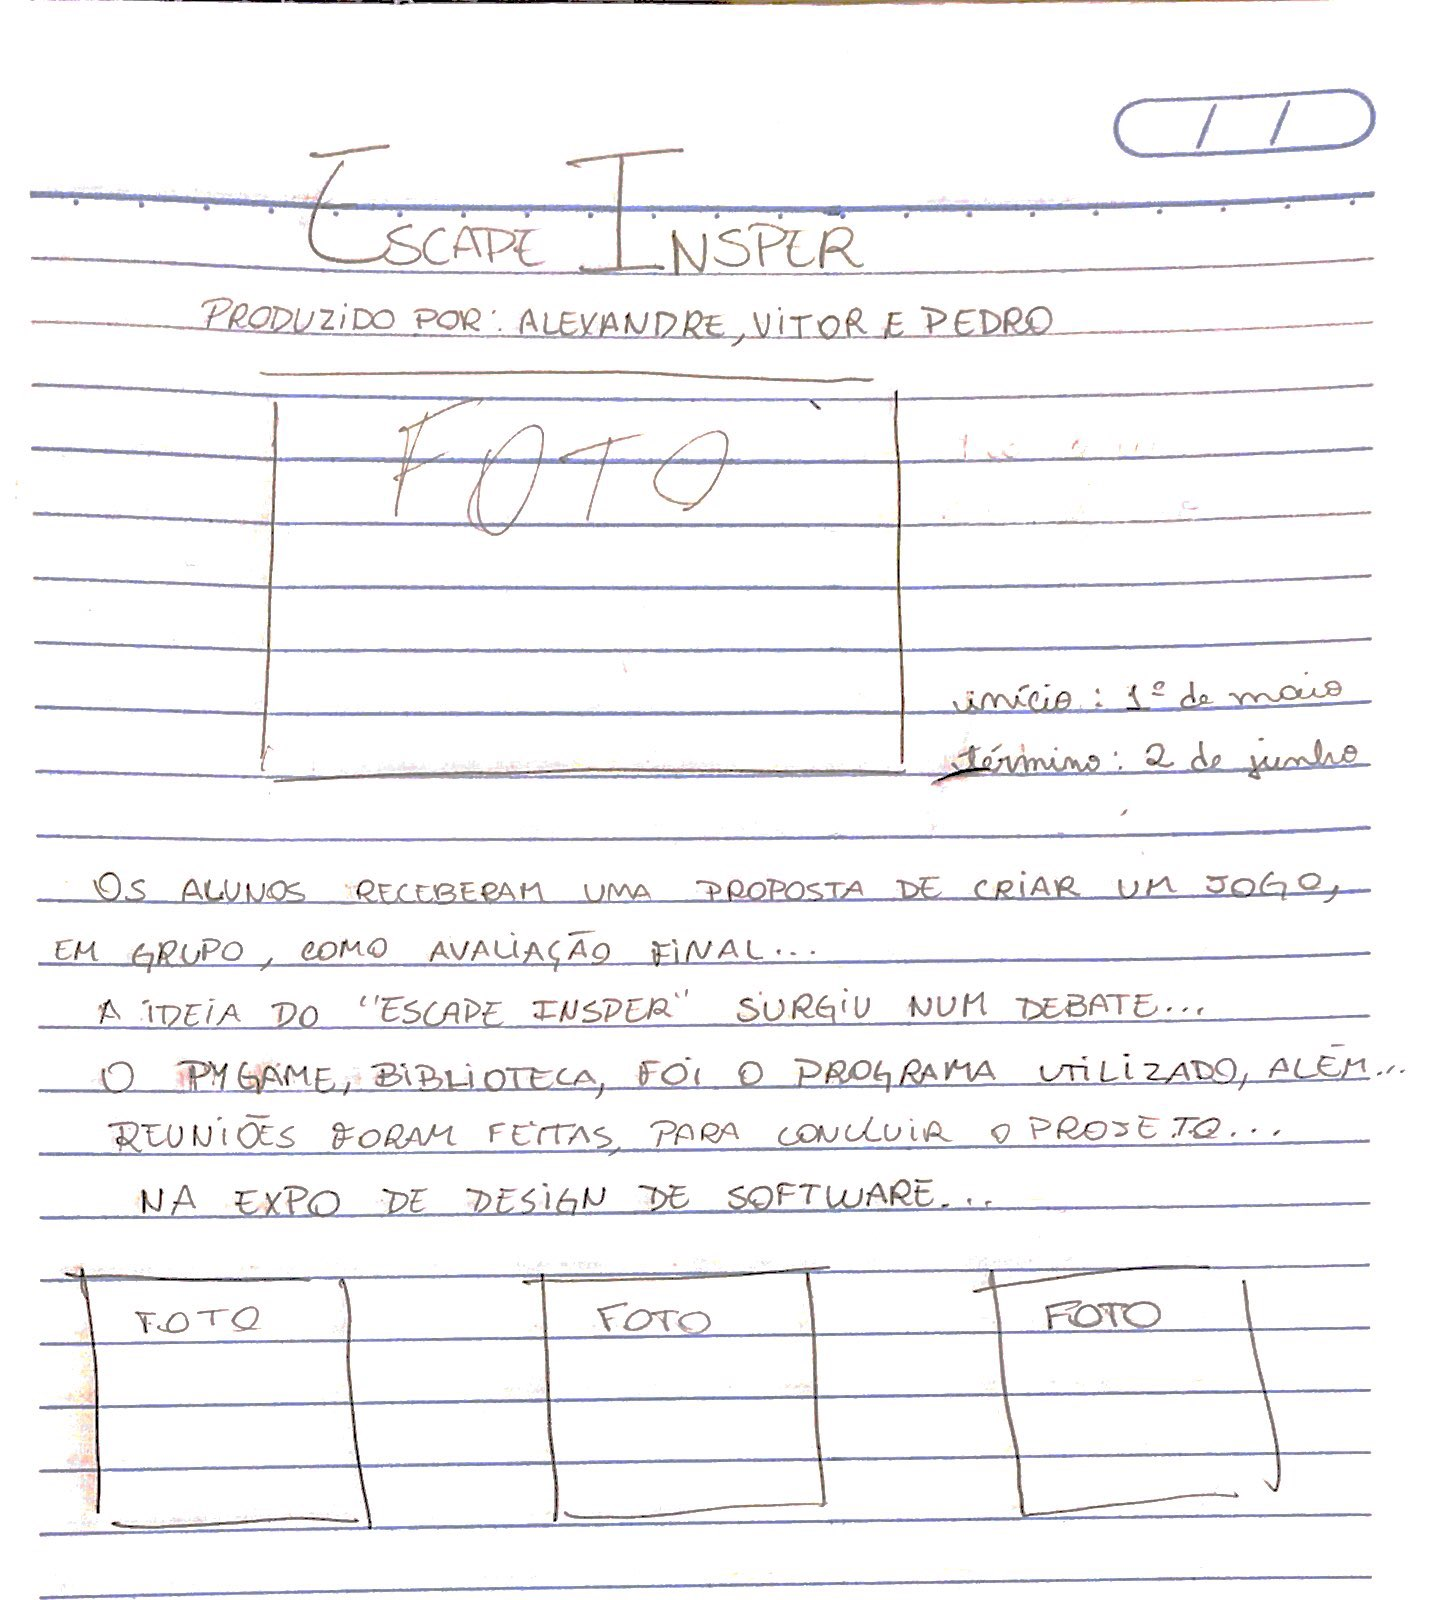 ESCAPE INSPER
PRODUZIDO POR: ALEXANDRE, VITOR E PEDRO
FOTO
início: 1º de maio
término: 2 de junho
OS ALUNOS RECEBERAM UMA PROPOSTA DE CRIAR UM JOGO,
EM GRUPO, COMO AVALIAÇÃO FINAL...
A IDEIA DO "ESCAPE INSPER" SURGIU NUM DEBATE...
O PYGAME, BIBLIOTECA, FOI O PROGRAMA UTILIZADO, ALÉM...
REUNIÕES FORAM FEITAS, PARA CONCLUIR O PROJETO...
NA EXPO DE DESIGN DE SOFTWARE...
FOTO FOTO FOTO